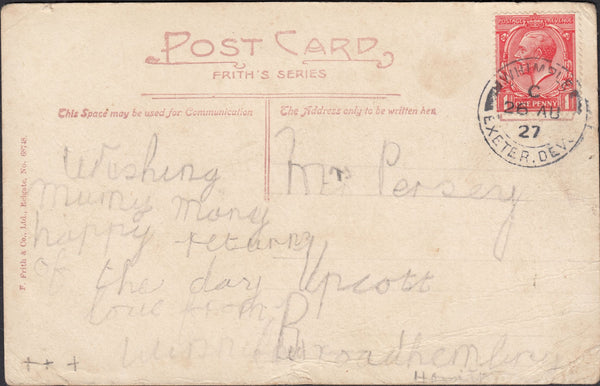 POST CARD
FRITH'S SERIES
This Space may be used for Communication
The Address only to be written here
F. Frith & Co., Ltd., Reigate, No. 69748
POSTAGE REVENUE
ONE PENNY
WHIMPLE
C
26 AU
27
EXETER. DEV
Wishing
Mumy many
happy returns
of the day
love from
Winnie
+ + +
Mrs Persey
Upcott
Broadhembury